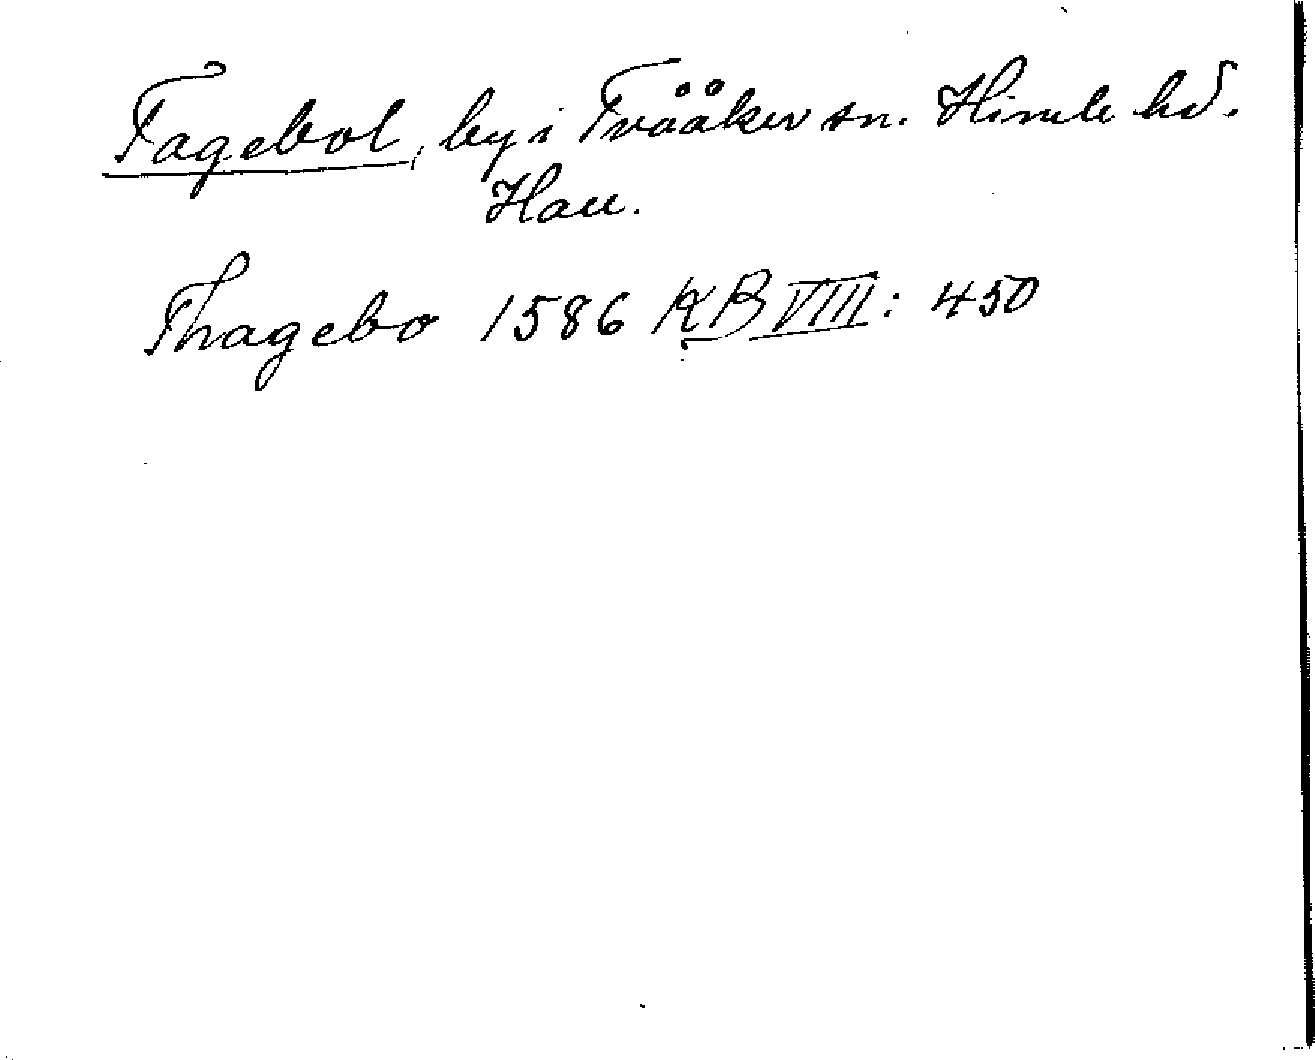 Tagebol, by i Tvååker sn. Himle hd.
Hall.
Thagebo 1586 KB VIII: 450